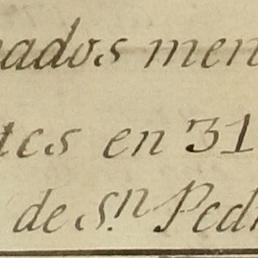 nados men
tes en 31
de S.n Pedr